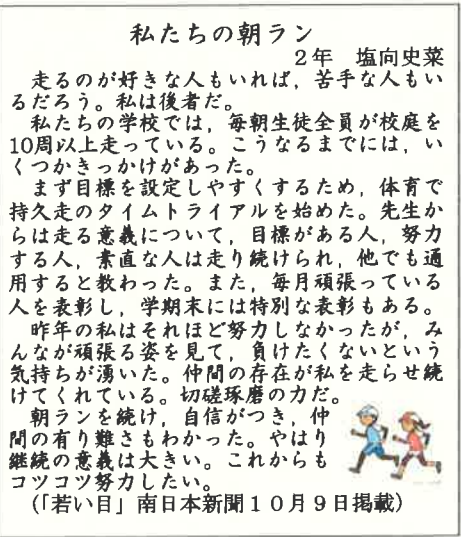 私たちの朝ラン
２年　塩向史菜
　走るのが好きな人もいれば，苦手な人もい
るだろう。私は後者だ。
　私たちの学校では，毎朝生徒全員が校庭を
10周以上走っている。こうなるまでには，い
くつかきっかけがあった。
　まず目標を設定しやすくするため，体育で
持久走のタイムトライアルを始めた。先生か
らは走る意義について，目標がある人，努力
する人，素直な人は走り続けられ，他でも通
用すると教わった。また，毎月頑張っている
人を表彰し，学期末には特別な表彰もある。
　昨年の私はそれほど努力しなかったが，み
んなが頑張る姿を見て，負けたくないという
気持ちが湧いた。仲間の存在が私を走らせ続
けてくれている。切磋琢磨の力だ。
　朝ランを続け，自信がつき，仲
間の有り難さもわかった。やはり
継続の意義は大きい。これからも
コツコツ努力したい。
（「若い目」南日本新聞１０月９日掲載）